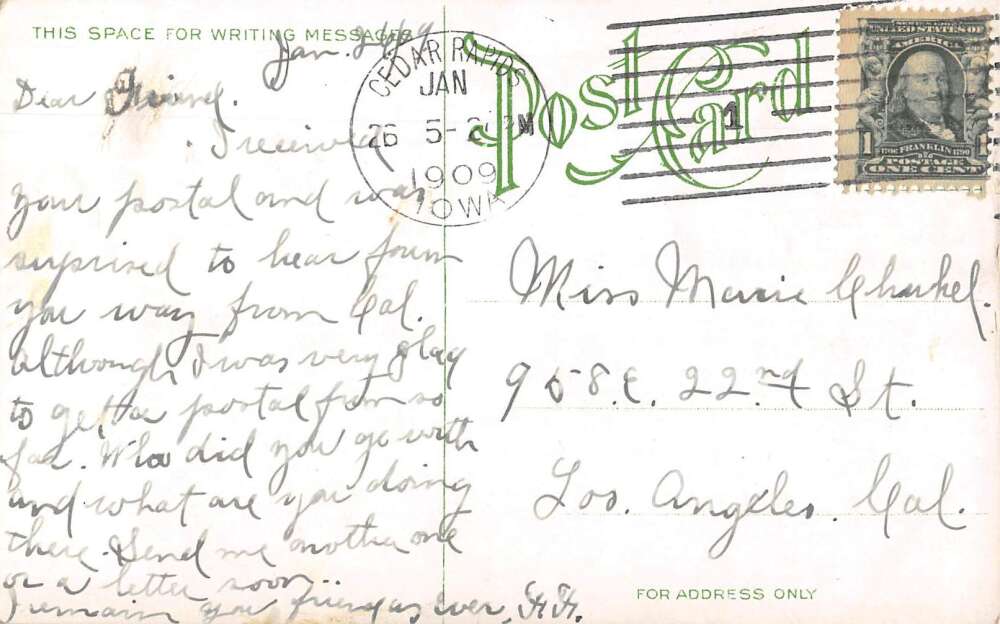 THIS SPACE FOR WRITING MESSAGES
Jan.
Dear Friend.
I received
your postal and was
surprised to hear from
you way from Cal.
although I was very glad
to get a postal from so
far. Who did you go with
and what are you doing
there. Send me another one
or a letter soon..
I remain you friend as ever,
Post Card
CEDAR RAPIDS
JAN
26 5-
1909
IOWA
1
SERIES 1902
UNITED STATES OF
AMERICA
1706 FRANKLIN 1790
1 1
POSTAGE
ONE CENT
Miss Marie
958 E. 22nd St.
Los. Angeles. Cal.
FOR ADDRESS ONLY